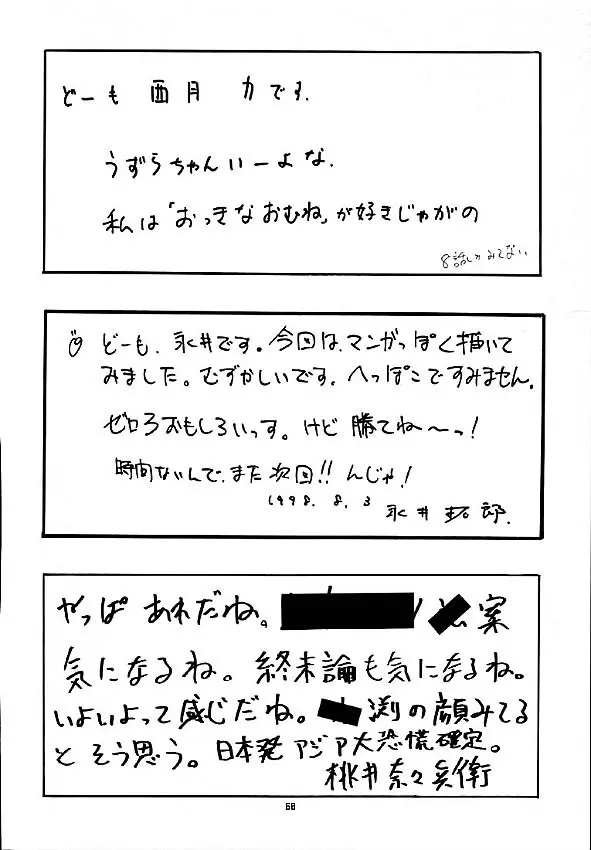 どーも 酉月 力です.
うずらちゃんいーよな.
私は「おっきなおむね」が好きじゃがの
8話しかみてない
どーも、永井です。今回は、マンガっぽく描いて
みました。むずかしいです。へっぽこですみません.
ゼロ3おもしろいっす。けど 勝てね〜っ!
時間ないんで、また次回!! んじゃ!
1998. 8. 3
永井 拓郎.
やっぱ あれだね。 案
気になるね。終末論も気になるね。
いよいよって感じだね。 渕の顔みてる
とそう思う。日本発アジア大恐慌確定。
桃井奈々兵衛
68